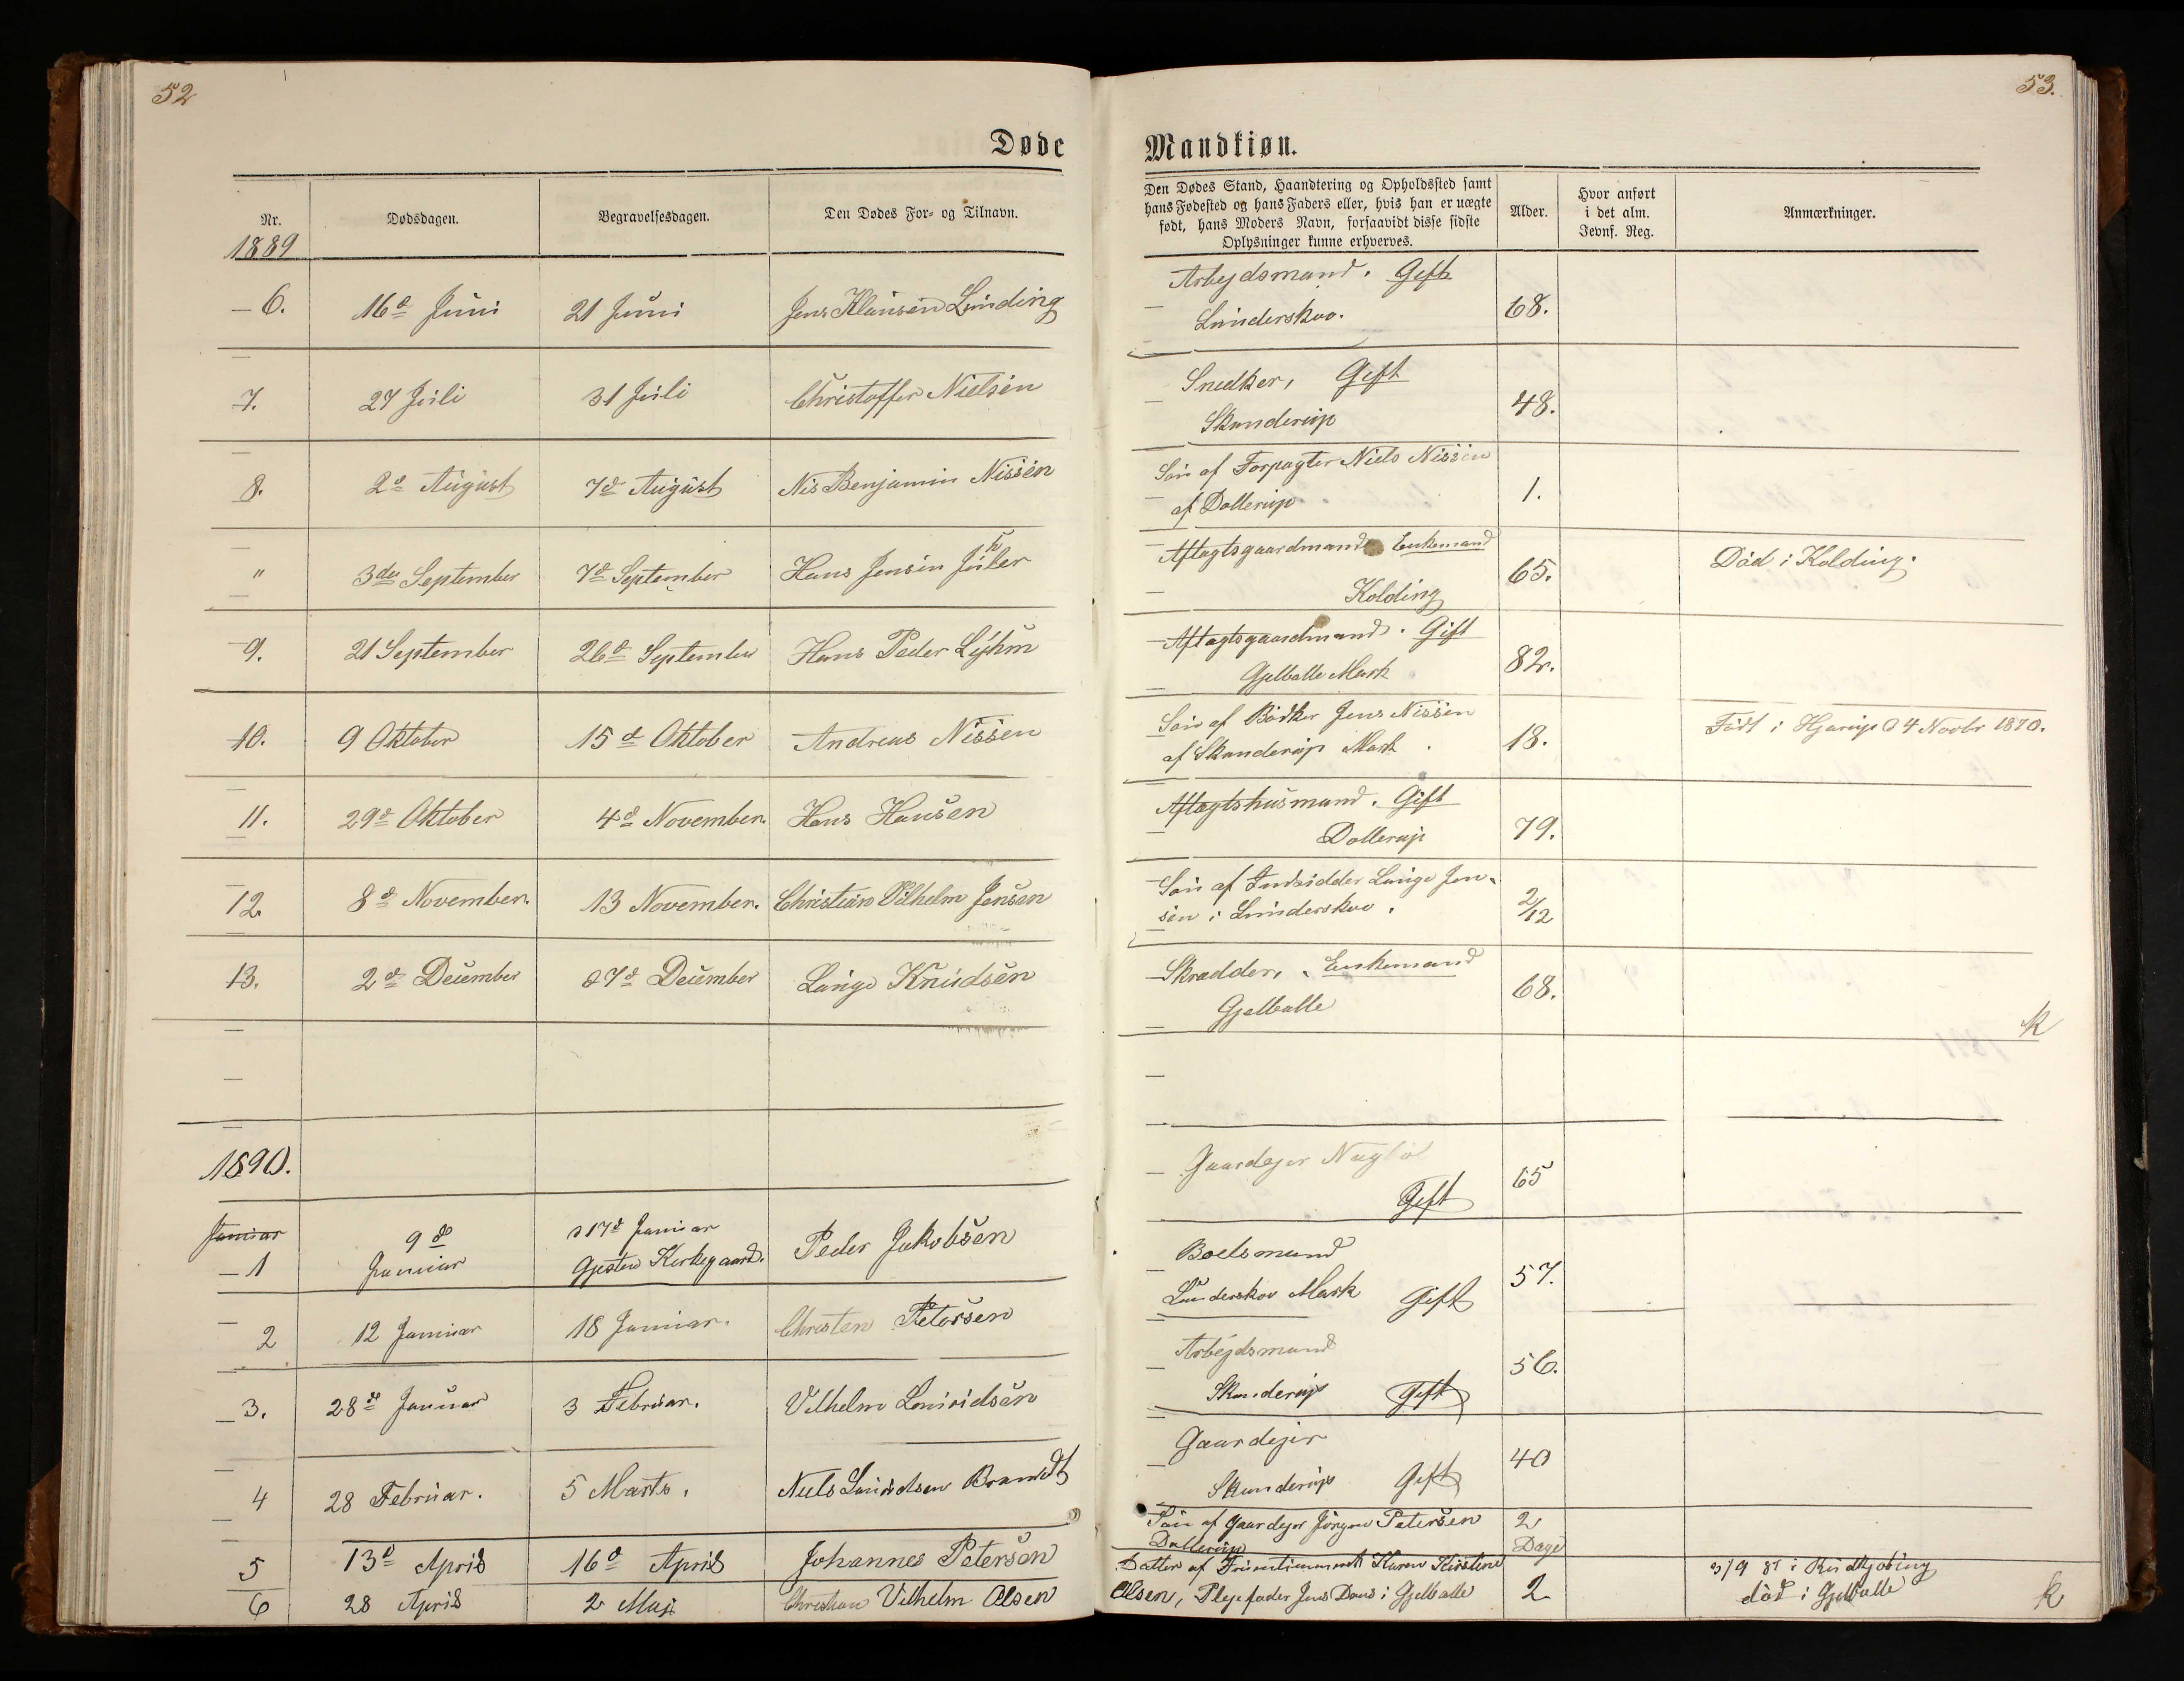 52
53.
Døde
Mandkiøn.
Nr.
Dødsdagen.
Begravelsesdagen.
Den Dødes For- og Tilnavn.
Den Dødes Stand, Haandtering og Opholdssted samt
hans Fødested og hans Faders eller, hvis han er uægte
født, hans Moders Navn, forsaavidt disse sidste
Oplysninger kunne erhverves.
Alder.
Hvor anført
i det alm.
Jevnf. Reg.
Anmærkninger.
1889
6.
16d Juni
21 Juni
Jens Klausen Lunding
Arbejdsmand. Gift
Lunderskov.
68.
7.
27 Juli
31 Juli
Christoffer Nielsen
Snedker, Gift
Skanderup
48.
8.
2d August
7d August
Nis Benjamin Nissen
Søn af Forpagter Niels Nissen
af Dollerup
1.
"
3die September
7d September
Hans Jensen Juhler
Aftagtsgaardmand Enkemand
Kolding
65.
Død i Kolding.
9.
21 September
26d September
Hans Peder Lyhm
Aftagtsgaardmand. Gift
Gjelballe Mark
82.
10.
9 Oktober
15d Oktober
Andreas Nissen
Søn af Bødker Jens Nissen
af Skanderup Mark.
18.
Født i Hjarup 4 Novbr 1870.
11.
29d Oktober
4d November.
Hans Hansen
Aftægtshusmand. Gift
Dollerup
79.
12.
8d November.
13 November.
Christian Vilhelm Jensen
Søn af Indsidder Lauge Jen-
sen i Lunderskov.
2/12
13.
2d December
7d December
Lauge Knudsen
Skrædder, Enkemand
Gjelballe
68.
k
1890.
Januar
1
9d
Januar
17d Januar
Gjesten Kirkegaard.
Peder Jakobsen
Gaardejer Nagbøl
Gift
65
2
12 Januar
18 Januar.
Christen Petersen
Boelsmand
Lunderskov Mark Gift
57.
3.
28d Januar
3 Februar.
Vilhelm
Arbejdsmand
Skanderup Gift
56.
4
28 Februar.
5 Marts.
Niels Brandt
Gaardejer
Skanderup Gift
40
5
13d April
16d April
Johannes Petersen
Søn af Gaardejer Jørgen Petersen
Dollerup
2
Dage
6
28 April
2 Maj
Christian Vilhelm Olsen
Datter af Fruentimmeret Karen Kirstine
Olsen, Plejefader Jens Daus i Gjelballe
2
3/9 87 i Rudkjøbing
død i Gjelballe
k